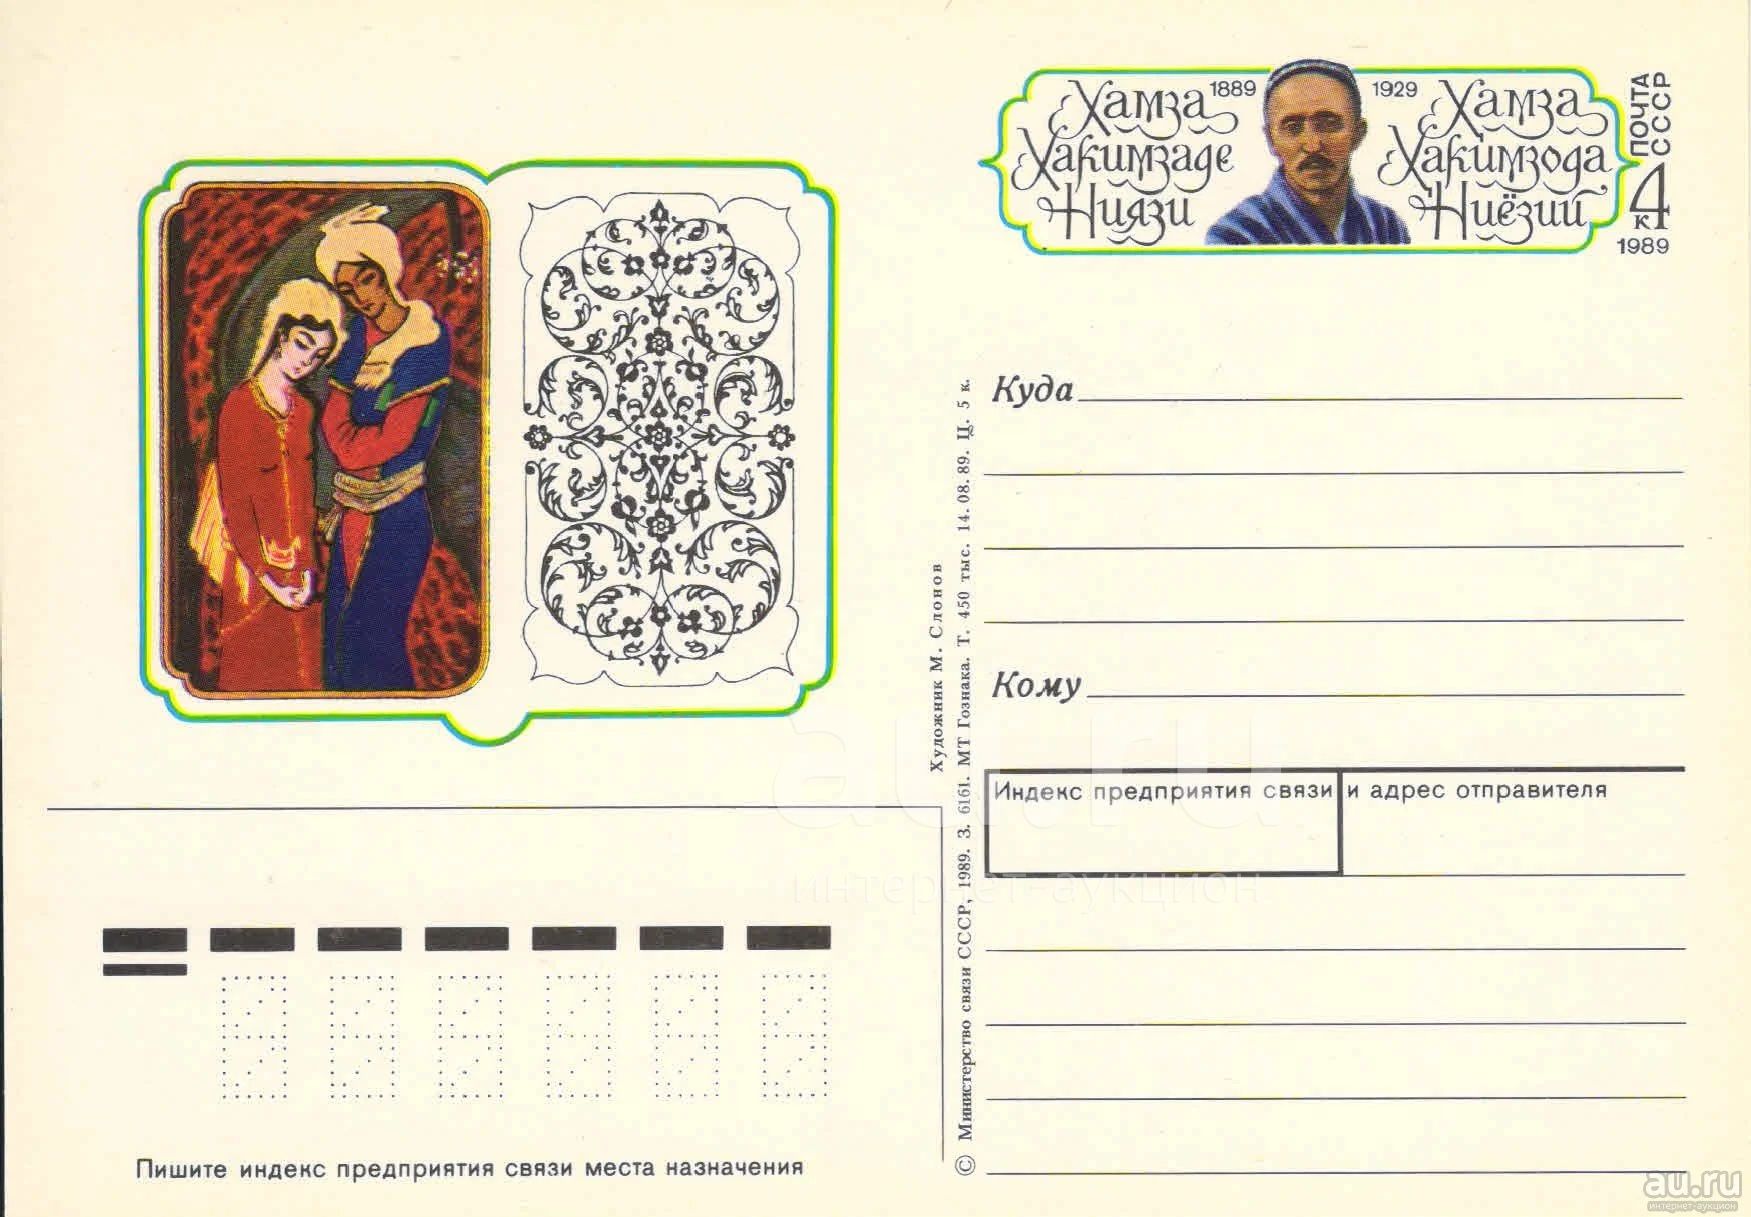 Хамза
Хакимзаде
Ниязи
1889
1929
Хамза
Хакимзода
Ниёзий
ПОЧТА
СССР
4
к
1989
Куда
Кому
Индекс предприятия связи и адрес отправителя
Художник М. Слонов
© Министерство связи СССР, 1989. З. 6161. МТ Гознака. Т. 450 тыс. 14. 08. 89. Ц. 5 к.
Пишите индекс предприятия связи места назначения
au.ru
интернет-аукцион
au.ru
интернет-аукцион